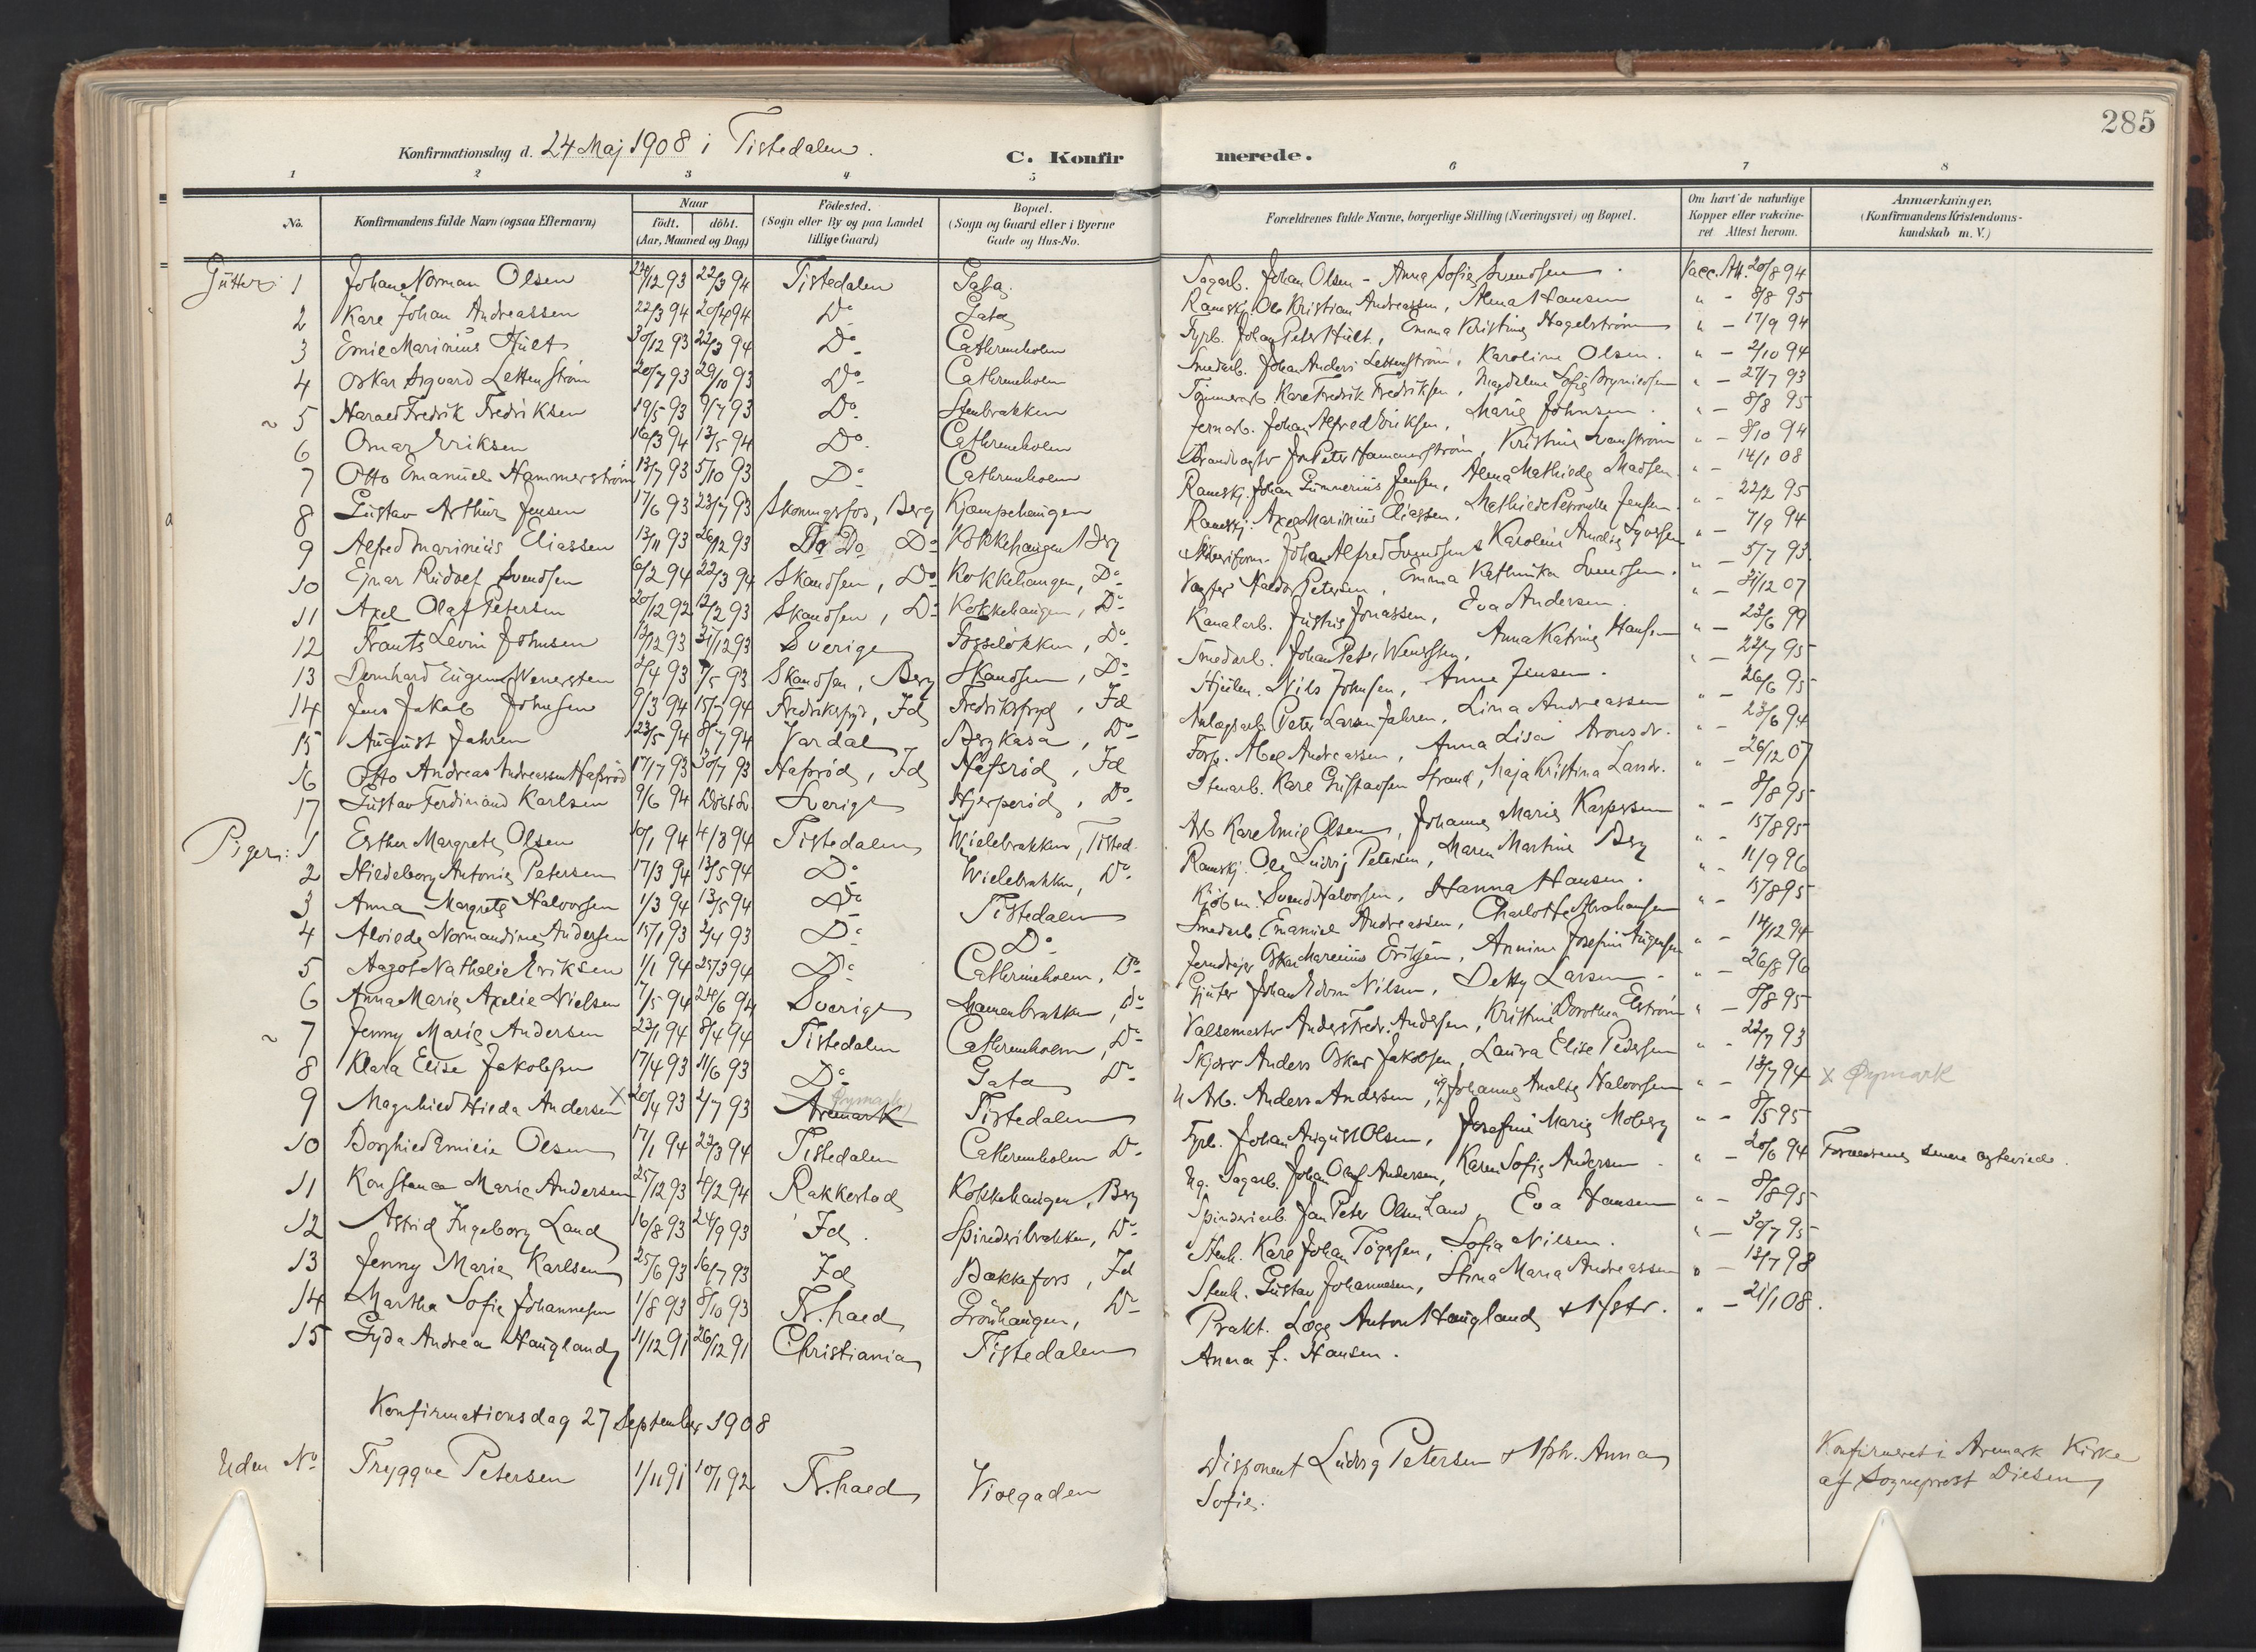 285
Konfirmationsdag d. 24 Maj 1908 i Tistedalen.
C. Konfirmerede.
1 2 3 4 5 6 7 8
No. Konfirmandens fulde Navn (ogsaa Efternavn) Naar født. døbt. (Aar, Maaned og Dag) Fødested. (Sogn eller By og paa Landet tillige Gaard) Bopæl. (Sogn og Gaard eller i Byerne Gade og Hus-No. Forældrenes fulde Navne, borgerlige Stilling (Næringsvei) og Bopæl. Om havt de naturlige Kopper eller vakcineret Attest herom. Anmærkninger. (Konfirmandens Kristendomskundskab m. V.)
Gutter: 1 Johan Norman Olsen 22/3 94 Tistedalen Gata. Sagarb. Johan Olsen - Anna Sofie Svendsen. Vacc. Att. 20/8 94
2 Kare Johan Andreassen 22/3 94 20/4 94 Do Gata Ramskj. Ole Kristian Andreassen, Alma Hansen " - 8/8 95
3 Emil Marinius Hult 30/12 93 22/3 94 Do Cathrineholm Fyrb. Johan Peter Hult, Emma Kristine Hagelstrøm " - 17/9 94
4 Oskar Sigvard Lettenstrøm 20/7 93 29/10 93 Do Cathrineholm Smedarb. Johan Anders Lettenstrøm, Karoline Olsen. " - 2/10 94
~ 5 Harald Fredrik Fredriksen 19/5 93 9/7 93 Do Stenbrakken Tømmerarb. Karl Fredrik Fredriksen, Magdalena Sofie " - 27/7 93
6 Omar Eriksen 16/3 94 13/5 94 Do. Cathrineholm Jernarb. Johan Alfred Eriksen, Marie Johnsen. " - 8/8 95
7 Otto Emanuel Hammerstrøm 13/7 93 5/10 93 Do Cathrineholm Brandvagter Jon Peter Hammerstrøm, Kristine Svanstrøm " - 8/10 94
8 Gustav Arthur Jensen 17/6 93 23/7 93 Skonningsfos, Berg Kjæmpehaugen Ramskj. Johan Gunnerius Jensen, Alma Mathilde Madsen " - 14/1 08
9 Alfred Marinius Eliassen 13/11 93 26/12 93 Do Do Kokkehaugen, Berg Ramskj. Axel Marinius Eliassen, Mathilde Petronelle Jensen " - 22/2 95
10 Ejnar Rudolf Svendsen 6/2 94 22/3 94 Skandsen, Do Kokkehaugen, Do Johan Alfred Svendsen, Karoline Amalie " - 7/9 94
11 Axel Olaf Petersen 20/12 92 12/2 93 Skandsen, Do Kokkehaugen, Do Vagter Petersen, Emma Kathinka Svendsen. " - 5/7 93
12 Frants Levin Johnsen 13/12 93 31/12 93 Sverige Fosseløkken, Do Kanalarb. Justus Jonassen, Eva Andersen. " - 31/12 07
13 Bernhard Eugen Wenersten 2/4 93 7/5 93 Skandsen, Berg Skandsen, Do Smedarb. Johan Peter Wenersten, Anna Katrine Hansen " - 23/6 99
14 Jens Jakob Johnsen 9/3 94 15/7 94 Fredriksfryd, Id Fredriksfryd, Id Nils Johnsen, Anne Jensen. " - 22/7 95
15 August Jahren 23/5 94 8/7 94 Vardal Bergkasa, Do Anlægsarb. Peter Larsen Jahren, Lina Andreassen " - 26/6 95
16 Otto Andreas Andreassen Hafsrød 17/7 93 30/7 93 Hafsrød, Id Hafsrød, Id Forp. Abel Andreassen, Anna Lisa Aronsdr. " - 23/6 94
17 Gustav Ferdinand Karlsen 9/6 94 Døbt Sv. Sverige Hjerperød, Do Stenarb. Karl Gustavsen Strand, Maja Kristina Larsdr. " - 26/12 07
Piger: 1 Esther Margrete Olsen 10/1 94 4/3 94 Tistedalen Wielebrakken, Tisted. Arb. Karl Emil Olsen, Johanne Marie Kaspersen " - 8/8 95
2 Hildeborg Antonie Petersen 17/3 94 13/5 94 Do Wielebrakken, Do Ramskj. Ole Ludvig Petersen, Maren Martine Berg " - 15/8 95
3 Anna Margrete Halvorsen 1/3 94 13/5 94 Do Tistedalen Kjøbm. Svend Halvorsen, Hanna Hansen. " - 11/9 96
4 Alvilde Normandine Andersen 15/1 93 2/4 93 Do Do Smedarb. Emanuel Andreassen, Charlotte Abrahamsen " - 15/8 95
5 Aagot Nathalie Eriksen 1/1 94 25/3 94 Do Cathrineholm, Do Jerndreier Oskar Marenius Eriksen, Annine Josefine " - 14/12 94
6 Anna Marie Axelie Nielsen 7/5 94 24/6 94 Sverige Do Gjuter Johan Edvin Nilsen, Betty Larsen. " - 26/8 96
~ 7 Jenny Marie Andersen 23/1 94 8/4 94 Tistedalen Cathrineholm, Do Valsemester Anders Fredr. Andersen, Kristine Dorothea Elstrøm " - 8/8 95
8 Klara Elise Jakobsen 17/4 93 11/6 93 Do Gata Do Anders Oskar Jakobsen, Laura Elise Pedersen " - 22/7 93
9 Magnhild Hilda Andersen x 20/4 93 2/7 93 Aremark Øymark Tistedalen Arb. Anders Andersen, Johanne Amalie Halvorsen " - 13/7 94 x Øymark
10 Borghild Emilie Olsen 17/1 94 22/3 94 Tistedalen Cathrineholm Do Fyrb. Johan August Olsen, Josefine Marie Moberg " - 8/5 95
11 Konstance Marie Andersen 25/12 93 4/2 94 Rakkestad Kokkehaugen, Berg Ug. Sagarb. Johan Olaf Andersen, Karen Sofie Andersen. " - 20/6 94 Forældrene senere egteviede.
12 Astrid Ingeborg Land 16/8 93 24/9 93 Id. Spinderibrakken, Do Spinderiarb. Jan Peter Olsen Land, Eva Hansen " - 8/8 95
13 Jenny Marie Karlsen 25/6 93 16/7 93 Id Bakkefors, Id Stenh. Karl Johan Tøgersen, Sofia Nilsen. " - 30/7 95
14 Martha Sofie Johannesen 1/8 93 8/10 93 Fr.hald Grønhaugen, Do Stenh. Gustav Johannesen, Stina Maria Andreassen " - 13/7 98
15 Gyda Andrea Haugland 11/12 91 26/12 91 Christiania Tistedalen Prakt. Læge Anton Haugland & Hstr. " - 21/1 08.
Anna f. Hansen.
Konfirmationsdag 27 September 1908
Uden No Tryggve Petersen 1/11 91 10/1 92 Fr.hald Violgaden Disponent Ludvig Petersen & Hstr. Anna Konfirmeret i Aremark Kirke
Sofie. af Sogneprest Diesen